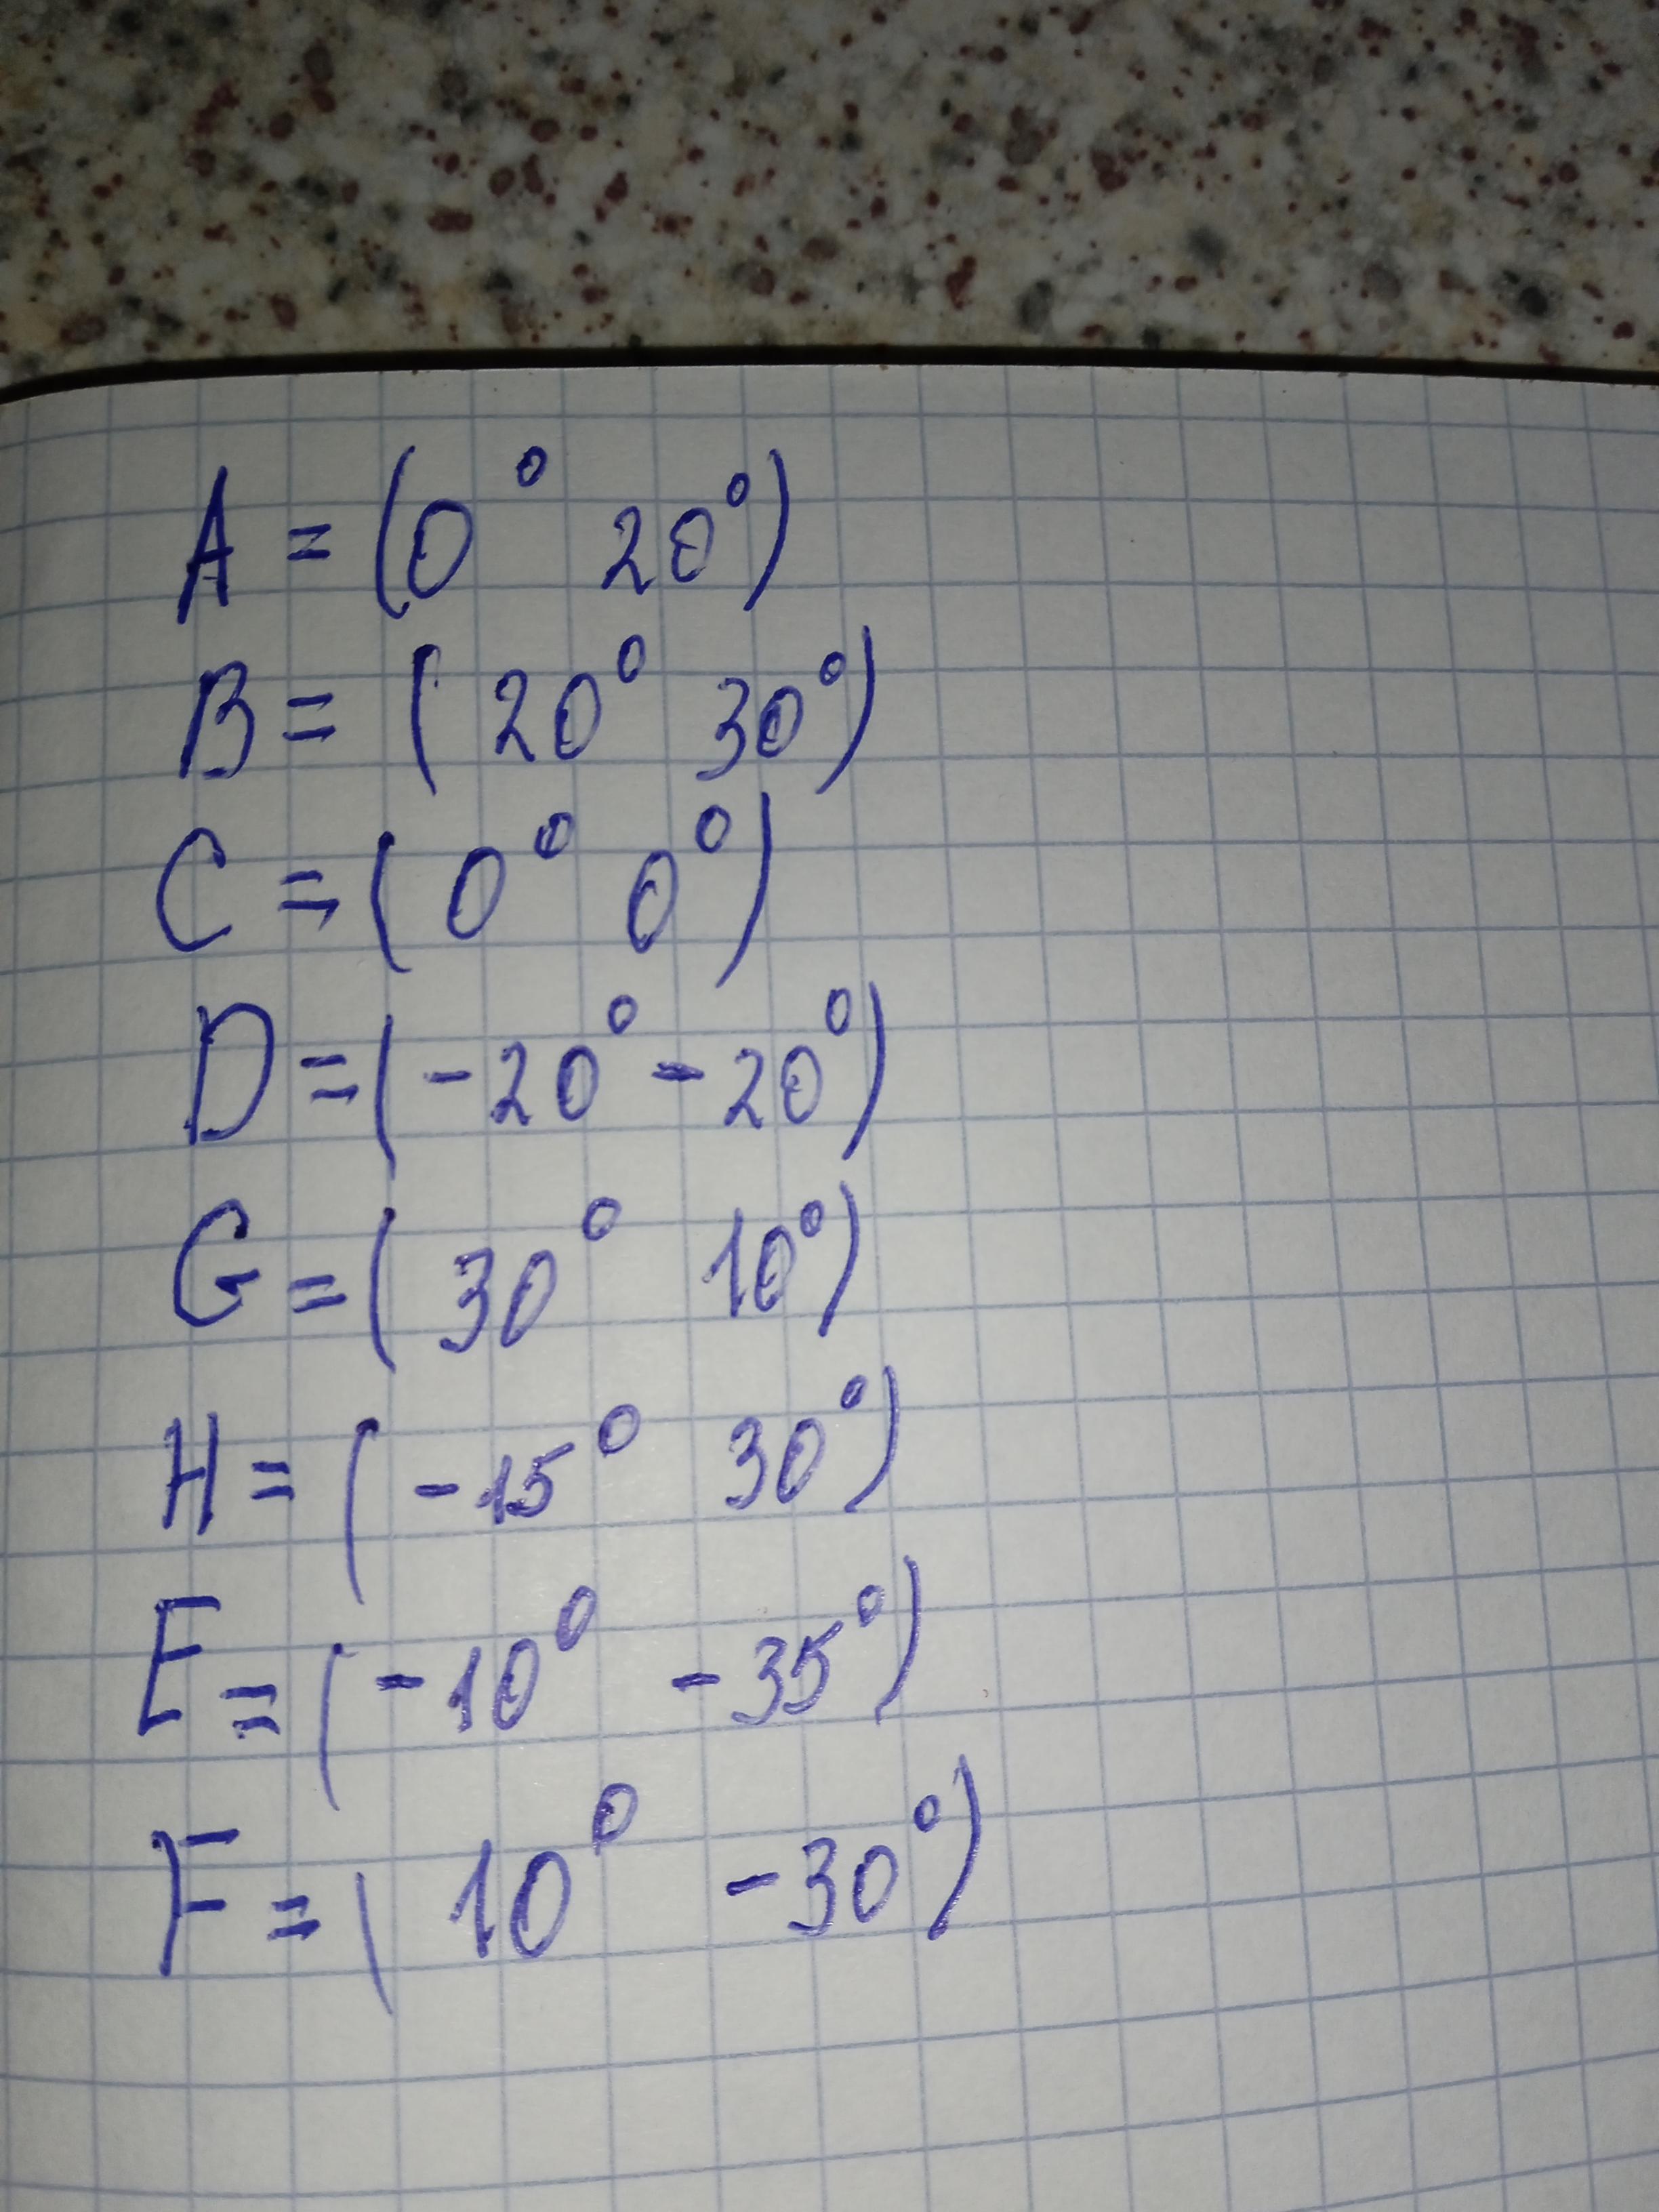 A = (0° 20°)
B = (20° 30°)
C = (0° 0°)
D = (-20° -20°)
G = (30° 10°)
H = (-15° 30°)
E = (-10° -35°)
F = (10° -30°)